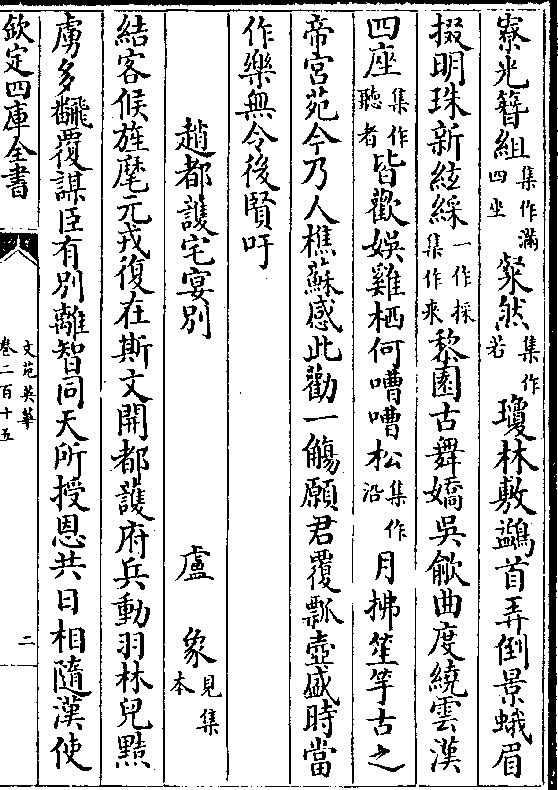 寮光簪組集作滿四坐粲然集作若瓊林敷鷁首弄倒景蛾眉
掇明珠新絃綵一作採集作來黎園古舞嬌吳歈曲度繞雲漢
四座集作聽者皆歡娛雞栖何嘈嘈松集作沿月拂笙竽古之
帝宮苑今乃人樵蘇感此勸一觴願君覆瓢壺盛時當
作樂無令後賢吁
趙都護宅宴別 盧象見集本
結客候旌麾元戎復在斯文開都護府兵動羽林兒黠
虜多翻覆謀臣有別離智同天所授恩共日相隨漢使
欽定四庫全書
文苑英華
卷二百十五
二